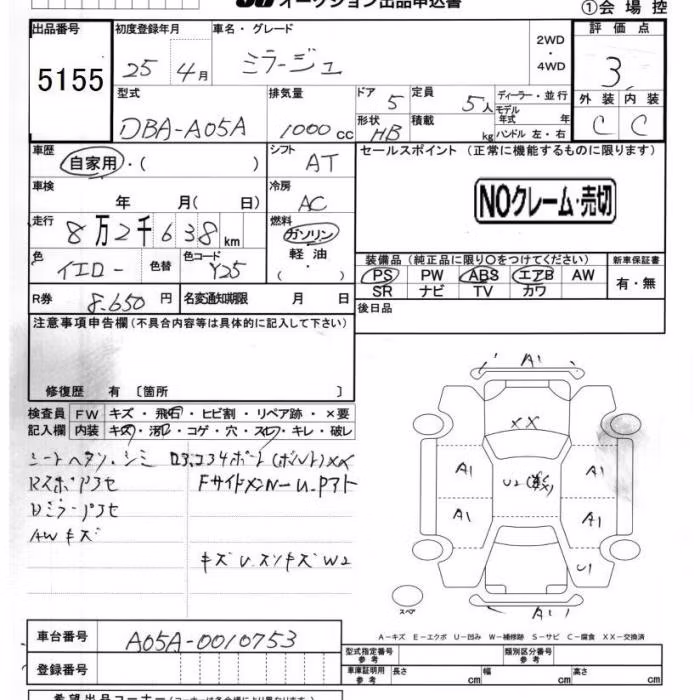 オークション出品申込書
①会場控
出品番号 初度登録年月 車名・グレード 2WD・4WD 評価点
5155 25年4月 ミラージュ 3
型式 排気量 ドア 5 定員 5人 ディーラー・並行 外装 内装
DBA-A05A 1000cc 形状 HB 積載 kg モデル年式 年 ハンドル 左・右 C C
車歴 自家用・( ) シフト AT セールスポイント (正常に機能するものに限ります)
車検 年 月( 日) 冷房 AC
NOクレーム・売切
走行 8万2千638km 燃料 ガソリン・軽油・( )
色 イエロー 色替 色コード Y25
装備品(純正品に限り○をつけてください) 新車保証書
PS PW ABS エアB AW 有・無
SR ナビ TV カワ
R券 8,650円 名変通知期限 月 日 後日品
注意事項申告欄(不具合内容等は具体的に記入して下さい)
修復歴 有 〔箇所 〕
検査員 FW キズ・飛石・ヒビ割・リペア跡・×要
記入欄 内装 キズ・汚レ・コゲ・穴・スレ・キレ・破レ
シートヘタリ・シミ
AWキズ
キズ U W2
A1
XX
A1 A1
U2
A1 A1
U1
A1
スペア
A-キズ E-エクボ U-凹み W-補修跡 S-サビ C-腐食 XX-交換済
車台番号 A05A-0010753
型式指定番号 参考 類別区分番号 参考
登録番号
車庫証明用 参考 長さ cm 幅 cm 高さ cm
希望出品コーナー